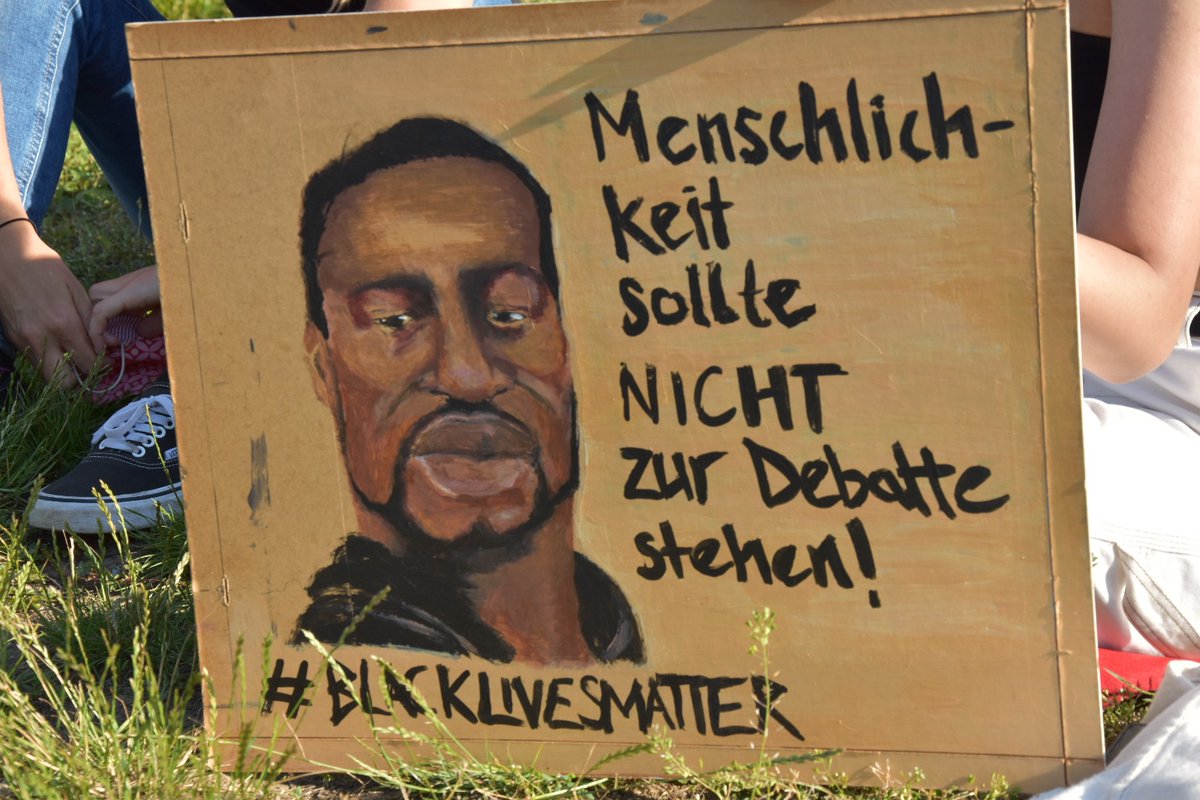 Menschlich-
keit
sollte
NICHT
zur Debatte
stehen!
#BLACKLIVESMATTER